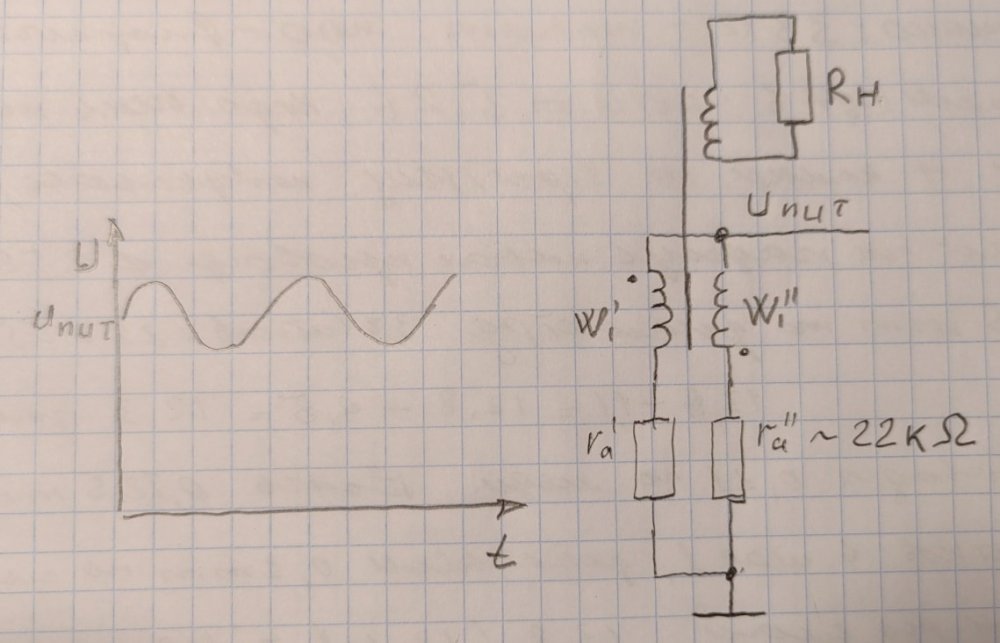 U
Uпит
t
Rн
Uпит
W₁'
W₁''
ra'
ra'' ~ 22кΩ